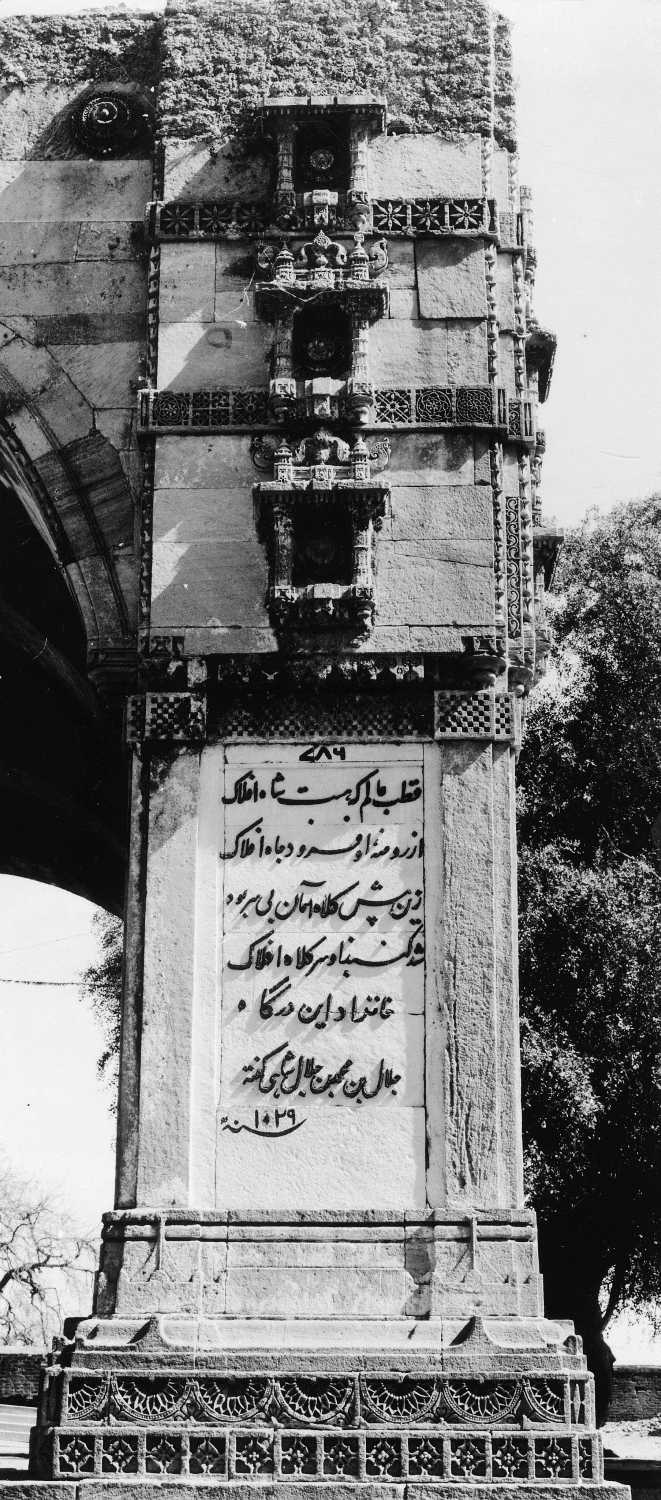 ۷۸۶
قطب عالم که هست شاه افلاک
از روضهٔ او فزود جاه افلاک
زین پیش کلاه آسمان بی سر بود
شد گنبد او سر کلاه افلاک
خانزاد این درگاه
جلال بن محمد بن جلال شاهی گفته
سنه ۱۰۳۹